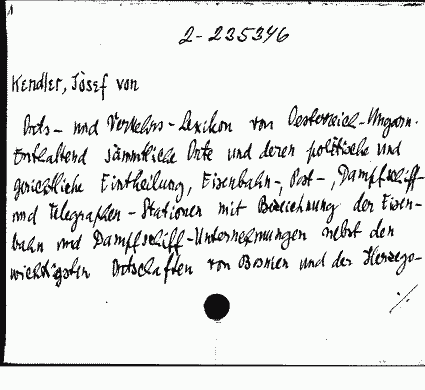 1
2-235346
Kendler, Josef von
Orts- und Verkehrs-Lexikon von Oesterreich-Ungarn.
Enthaltend sämmtliche Orte und deren politische und
gerichtliche Eintheilung, Eisenbahn-, Post-, Dampfschiff-
und Telegraphen-Stationen mit Bezeichnung der Eisen-
bahn und Dampfschiff-Unternehmungen nebst den
wichtigsten Ortschaften von Bosnien und der Herzego-
./.